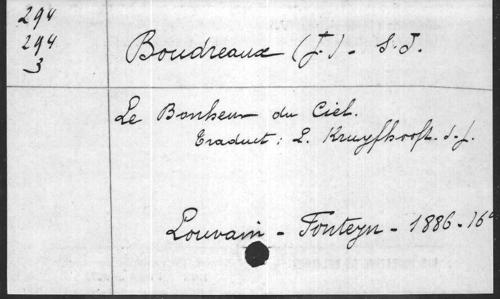 294
294
3
Boudreaux (J.) - S.J.
Le Bonheur du Ciel.
Traduct: L. Kruyfhooft. s.j.
Louvain - Fonteyn - 1886 - 16°